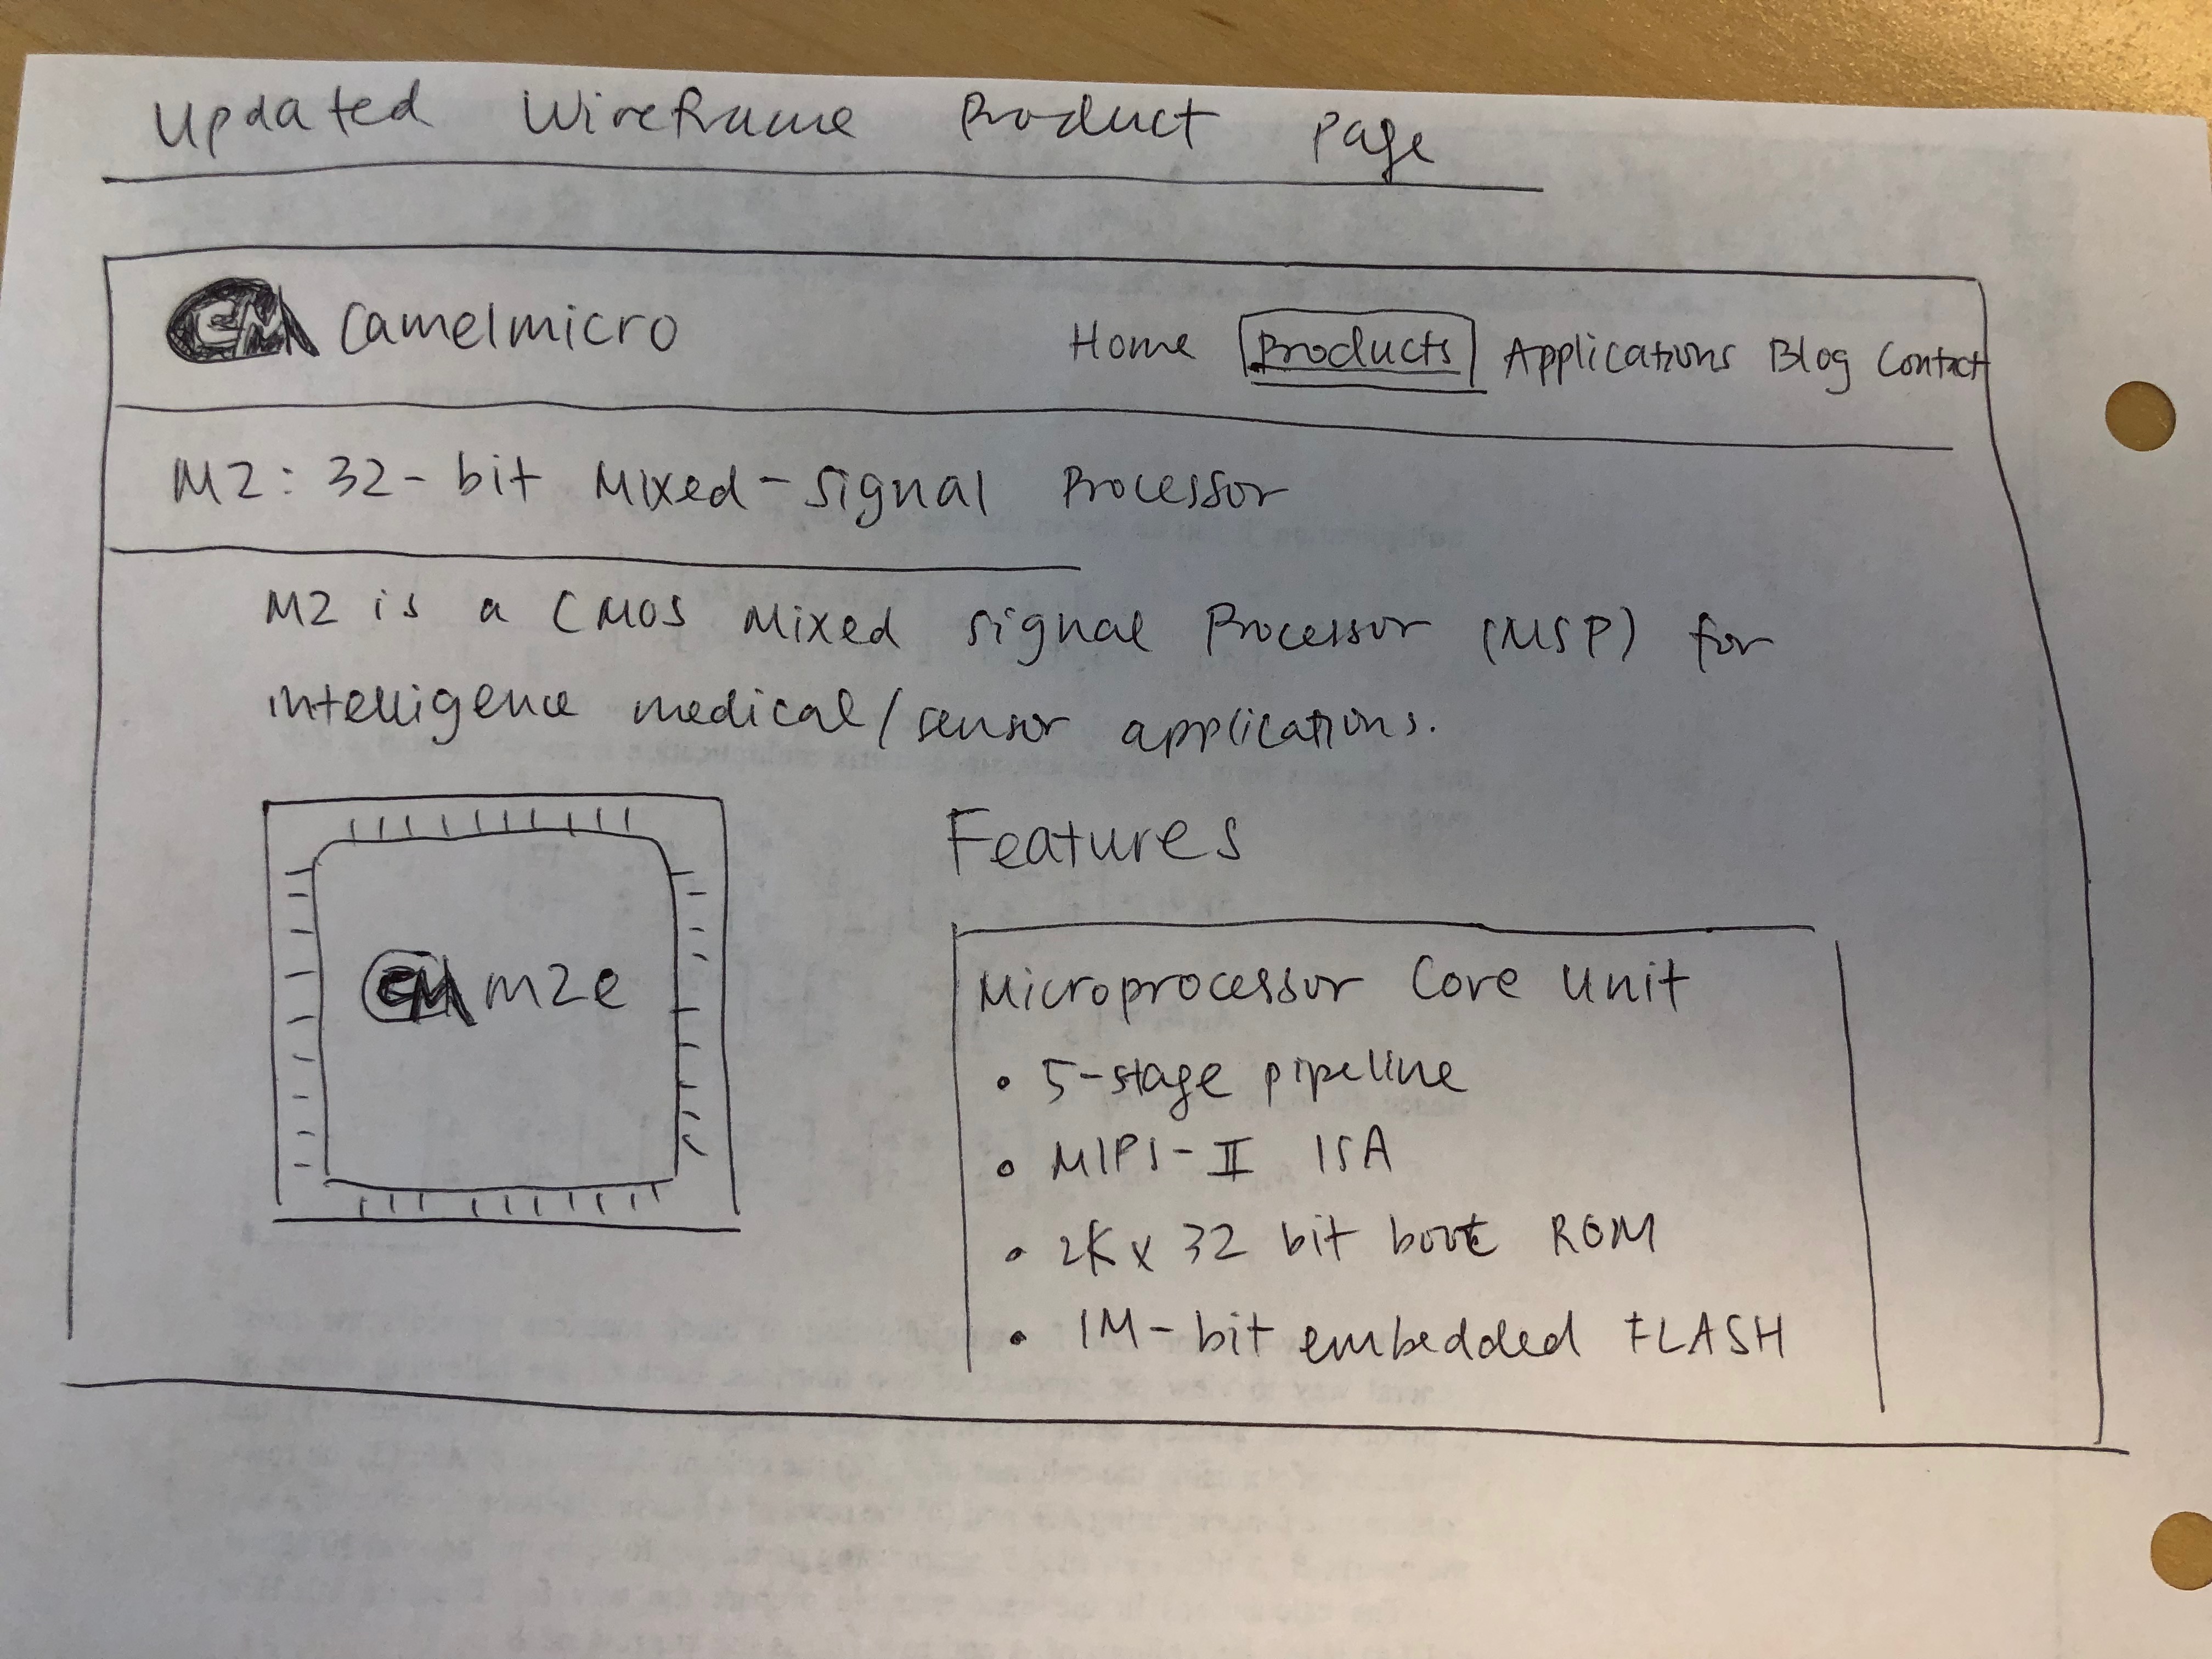 Updated Wireframe Product Page
CM Camelmicro
Home Products Applications Blog Contact
M2: 32-bit Mixed-Signal Processor
M2 is a CMOS Mixed Signal Processor (MSP) for
intelligence medical/sensor applications.
CM m2e
Features
Microprocessor Core Unit
• 5-stage pipeline
• MIPS-II ISA
• 2K x 32 bit boot ROM
• 1M-bit embedded FLASH